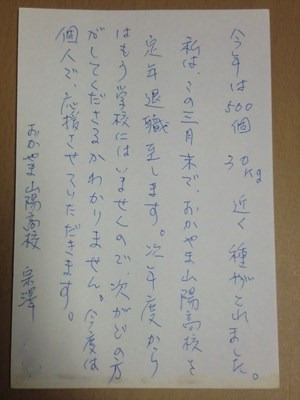 今年は500個 30kg 近く種がとれました。
私は、この三月末で、おかやま山陽高校を
定年退職至します。次年度から
はもう学校にはいませんので、次がどの方
がしてくださるかわかりません。今度は
個人で、応援させていただきます。
おかやま山陽高校 宗澤